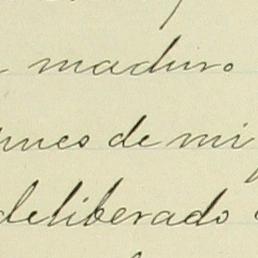 maduro
de mi
deliberado